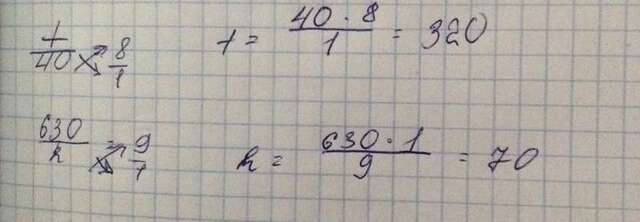 t/40 = 8/1 t = 40 · 8 / 1 = 320
630/h = 9/1 h = 630 · 1 / 9 = 70